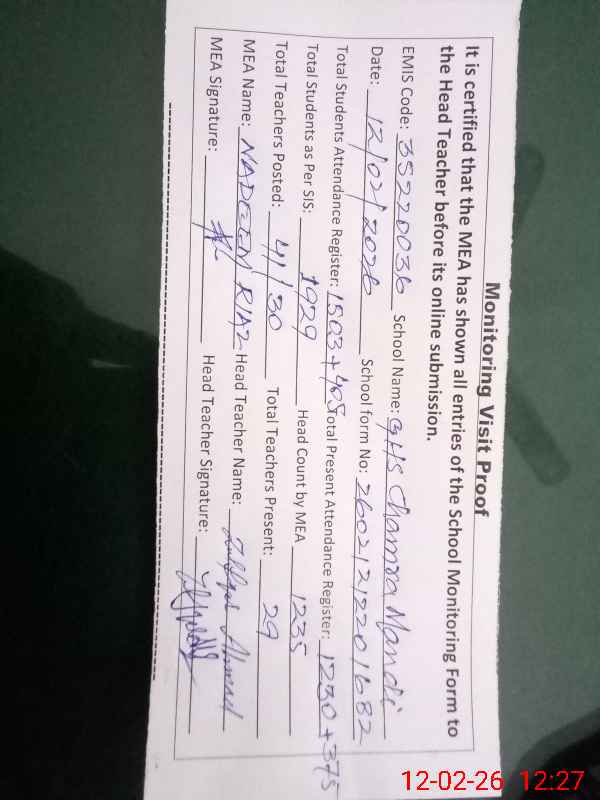 Monitoring Visit Proof
It is certified that the MEA has shown all entries of the School Monitoring Form to
the Head Teacher before its online submission.
EMIS Code: 35220036 School Name: GHS Chamra Mandi
Date: 12/02/2026 School form No: 260212122201682
Total Students Attendance Register: 1503+405 Total Present Attendance Register: 1230+375
Total Students as Per SIS: 1929 Head Count by MEA 1235
Total Teachers Posted: 41/30 Total Teachers Present: 29
MEA Name: NADEEM RIAZ Head Teacher Name: Zulfiqar Ahmad
MEA Signature: Head Teacher Signature:
12-02-26 12:27